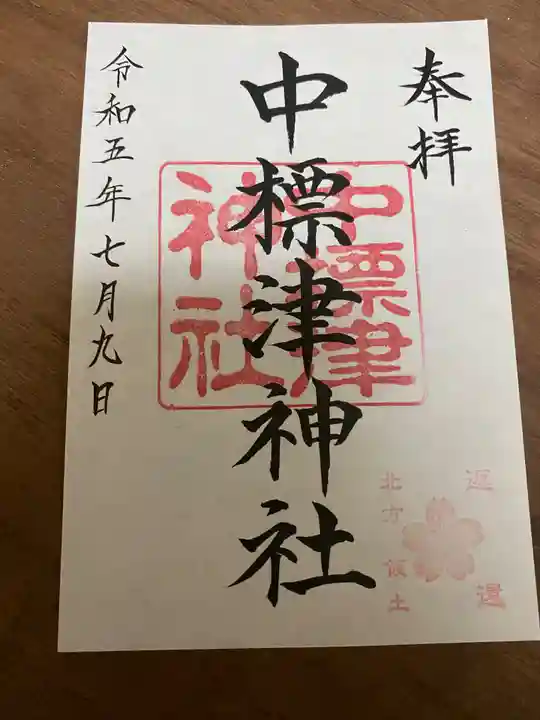 奉拝
中標津神社
中標津
神社
令和五年七月九日
返還
北方 領土